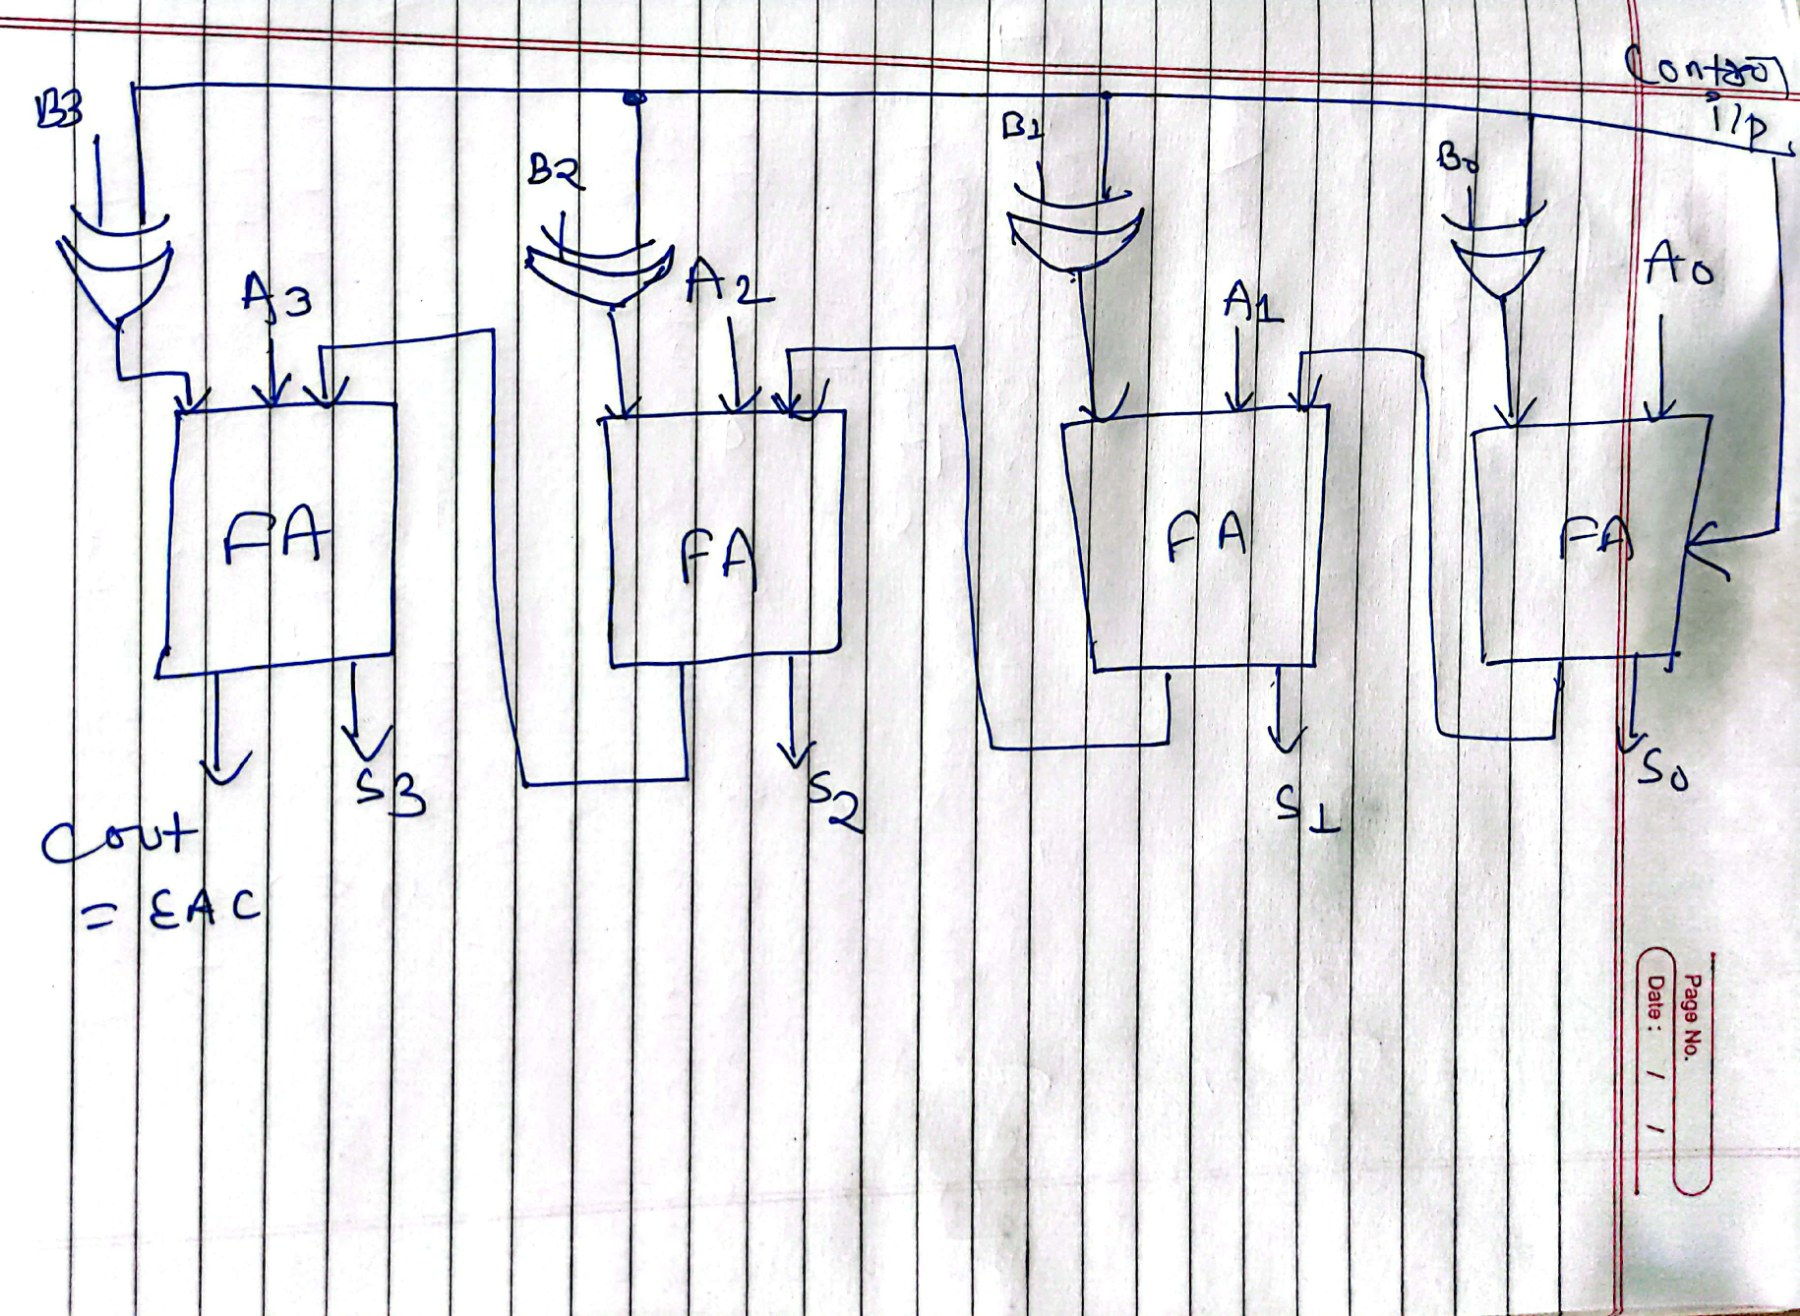 Control
i/p
B3
B2
B1
B0
A3
A2
A1
A0
FA
FA
FA
FA
S3
S2
S1
S0
Cout
= EAC
Page No.
Date : / /